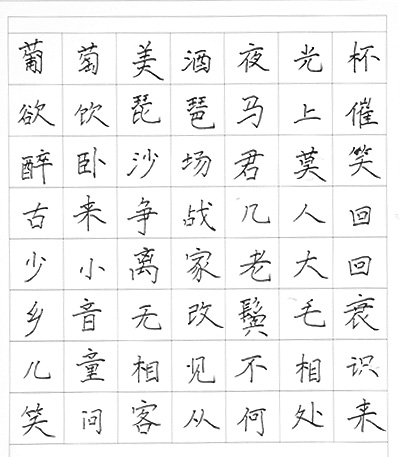 葡萄美酒夜光杯
欲饮琵琶马上催
醉卧沙场君莫笑
古来争战几人回
少小离家老大回
乡音无改鬓毛衰
儿童相见不相识
笑问客从何处来